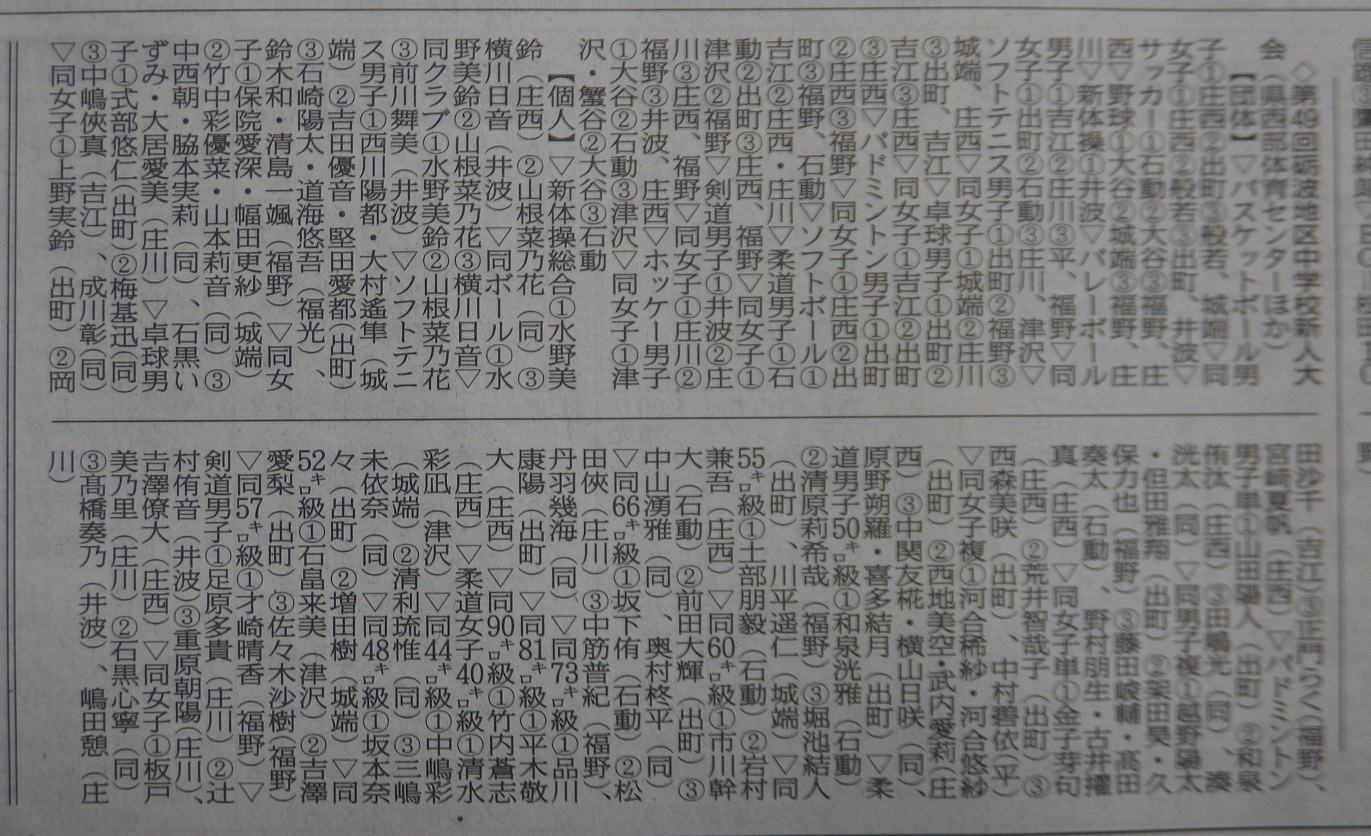 ◇第49回砺波地区中学校新人大
会（県西部体育センターほか）
【団体】▽バスケットボール男
子①庄西②出町③般若、城端▽同
女子①庄西②般若③出町、井波▽
サッカー①石動②大谷③福野、庄
西▽野球①大谷②城端③福野、庄
川▽新体操①井波▽バレーボール
男子①吉江②庄川③平、福野▽同
女子①出町②石動③庄川、津沢▽
ソフトテニス男子①出町②福野③
城端、庄西▽同女子①城端②庄川
③出町、吉江▽卓球男子①出町②
吉江③庄西▽同女子①吉江②出町
③庄西▽バドミントン男子①出町
②庄西③福野▽同女子①庄西②出
町③福野、石動▽ソフトボール①
吉江②庄西・庄川▽柔道男子①石
動②出町③庄西、福野▽同女子①
津沢②福野▽剣道男子①井波②庄
川③庄西、福野▽同女子①庄川②
福野③井波、庄西▽ホッケー男子
①大谷②石動③津沢▽同女子①津
沢・蟹谷②大谷③石動
【個人】▽新体操総合①水野美
鈴（庄西）②山根菜乃花（同）③
横川日音（井波）▽同ボール①水
野美鈴②山根菜乃花③横川日音▽
同クラブ①水野美鈴②山根菜乃花
③前川舞美（井波）▽ソフトテニ
ス男子①西川陽都・大村遙隼（城
端）②吉田優音・堅田愛都（出町）
③石崎陽太・道海悠吾（福光）、
鈴木和・清島一颯（福野）▽同女
子①保院愛深・幅田更紗（城端）
②竹中彩優菜・山本莉音（同）③
中西朝・脇本実莉（同）、石黒い
ずみ・大居愛美（庄川）▽卓球男
子①式部悠仁（出町）②梅基迅（同）
③中嶋俠真（吉江）、成川彰（同）
▽同女子①上野実鈴（出町）②岡
田沙千（吉江）③正門らく（福野）、
宮崎夏帆（庄西）▽バドミントン
男子単①山田陽人（出町）②和泉
侑汰（庄西）③田嶋光（同）、湊
洸太（同）▽同男子複①越野陽太
・但田雅翔（出町）②柴田昊・久
保力也（福野）③藤田峻輔・髙田
奏太（石動）、野村朋生・古井擢
真（庄西）▽同女子単①金子芽句
（庄西）②荒井智哉子（出町）③
西森美咲（出町）、中村碧依（平）
▽同女子複①河合稀紗・河合悠紗
（出町）②西地美空・武内愛莉（庄
西）③中関友椛・横山日咲（同）、
原野朔羅・喜多結月（出町）▽柔
道男子50㌔級①和泉洸雅（石動）
②清原莉希哉（福野）③堀池結人
（出町）、川平遥仁（城端）▽同
55㌔級①土部朋毅（石動）②岩村
兼吾（庄西）▽同60㌔級①市川幹
大（石動）②前田大輝（出町）③
中山湧雅（同）、奥村柊平（同）
▽同66㌔級①坂下侑（石動）②松
田俠（庄川）③中筋普紀（福野）、
丹羽幾海（同）▽同73㌔級①品川
康陽（出町）▽同81㌔級①平木敬
大（庄西）▽同90㌔級①竹内蒼志
（庄西）▽柔道女子40㌔級①清水
彩凪（津沢）▽同44㌔級①中嶋彩
（城端）②清利琉惟（同）③三嶋
未依奈（同）▽同48㌔級①坂本奈
々（出町）②増田樹（城端）▽同
52㌔級①石畠来美（津沢）②吉澤
愛梨（出町）③佐々木沙樹（福野）
▽同57㌔級①才崎晴香（福野）▽
剣道男子①足原多貴（庄川）②辻
村侑音（井波）③重原朝陽（庄川）、
吉澤僚大（庄西）▽同女子①板戸
美乃里（庄川）②石黒心寧（同）
③髙橋奏乃（井波）、嶋田憩（庄
川）